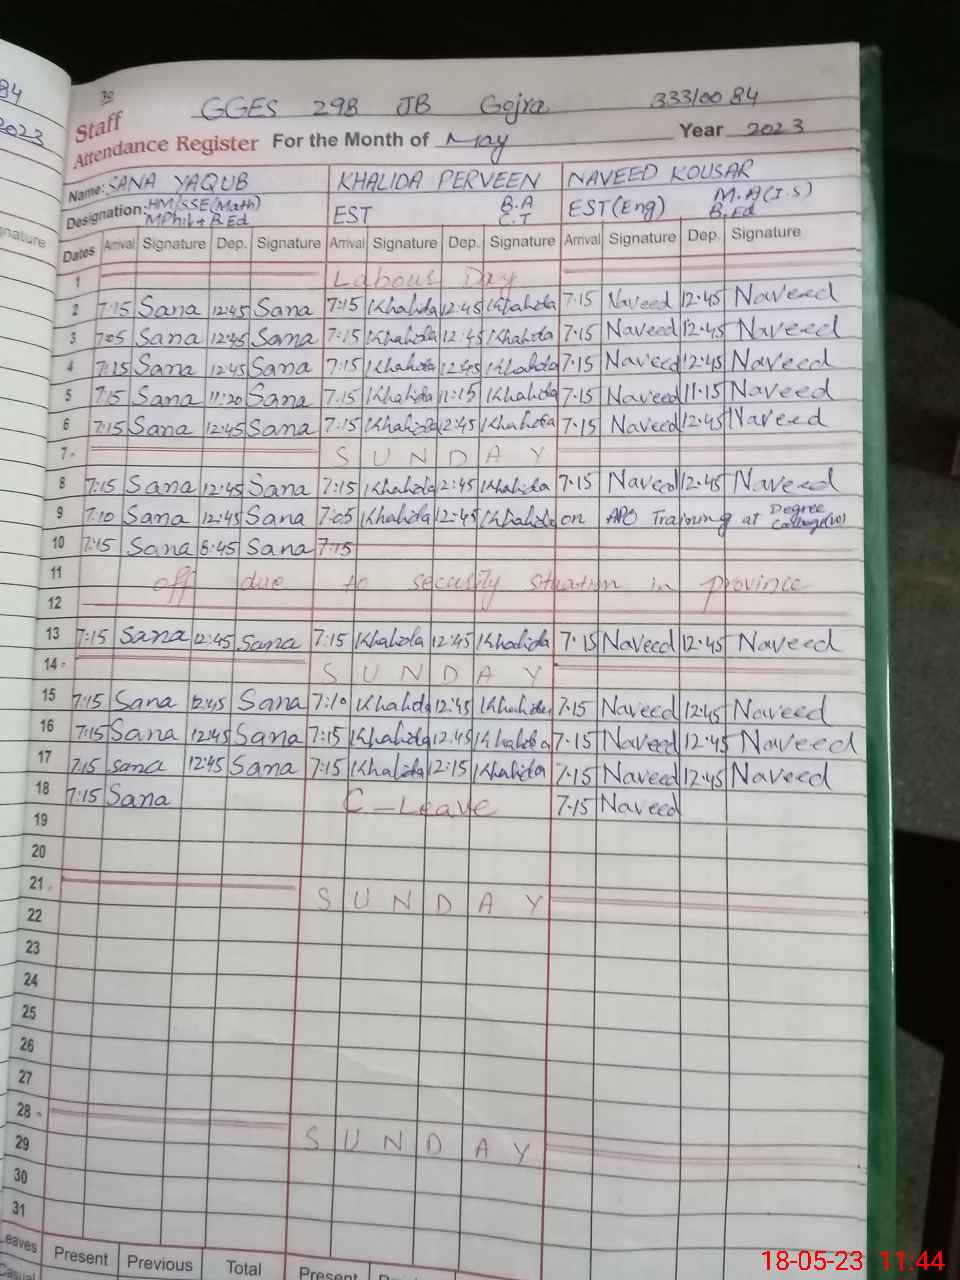 84
2023
nature
30
GGES 298 JB Gojra 33310084
Staff
Attendance Register For the Month of May Year 2023
Name: SANA YAQUB KHALIDA PERVEEN NAVEED KOUSAR
Designation: HM/SSE(Math) MPhil + B.Ed EST B.A C.T EST(Eng) M.A(I.S) B.Ed
Dates Arrival Signature Dep. Signature Arrival Signature Dep. Signature Arrival Signature Dep. Signature
1 Labour Day
2 7:15 Sana 12:45 Sana 7:15 Khalida 12:45 Khalida 7.15 Naveed 12.45 Naveed
3 7:05 Sana 12:45 Sana 7:15 Khalida 12:45 Khalida 7.15 Naveed 12.45 Naveed
4 7:15 Sana 12:45 Sana 7:15 Khalida 12:45 Khalida 7.15 Naveed 12.45 Naveed
5 7:15 Sana 11:20 Sana 7.15 Khalida 11:15 Khalida 7.15 Naveed 11.15 Naveed
6 7:15 Sana 12:45 Sana 7:15 Khalida 12:45 Khalida 7.15 Naveed 12.45 Naveed
7 SUNDAY
8 7:15 Sana 12:45 Sana 7:15 Khalida 12:45 Khalida 7.15 Naveed 12.45 Naveed
9 7:10 Sana 12:45 Sana 7:05 Khalida 12:45 Khalida on APO Training at Degree College
10 7:15 Sana 8:45 Sana 7:15
11 off due to security situation in province
12
13 7:15 Sana 12:45 Sana 7:15 Khalida 12:45 Khalida 7.15 Naveed 12.45 Naveed
14 SUNDAY
15 7:15 Sana 12:45 Sana 7:10 Khalida 12:45 Khalida 7.15 Naveed 12.45 Naveed
16 7:15 Sana 12:45 Sana 7:15 Khalida 12:45 Khalida 7.15 Naveed 12.45 Naveed
17 7:15 Sana 12:45 Sana 7:15 Khalida 12:15 Khalida 7.15 Naveed 12.45 Naveed
18 7:15 Sana C-Leave 7.15 Naveed
19
20
21 SUNDAY
22
23
24
25
26
27
28 SUNDAY
29
30
31
Leaves Present Previous Total Present
Casual
18-05-23 11:44